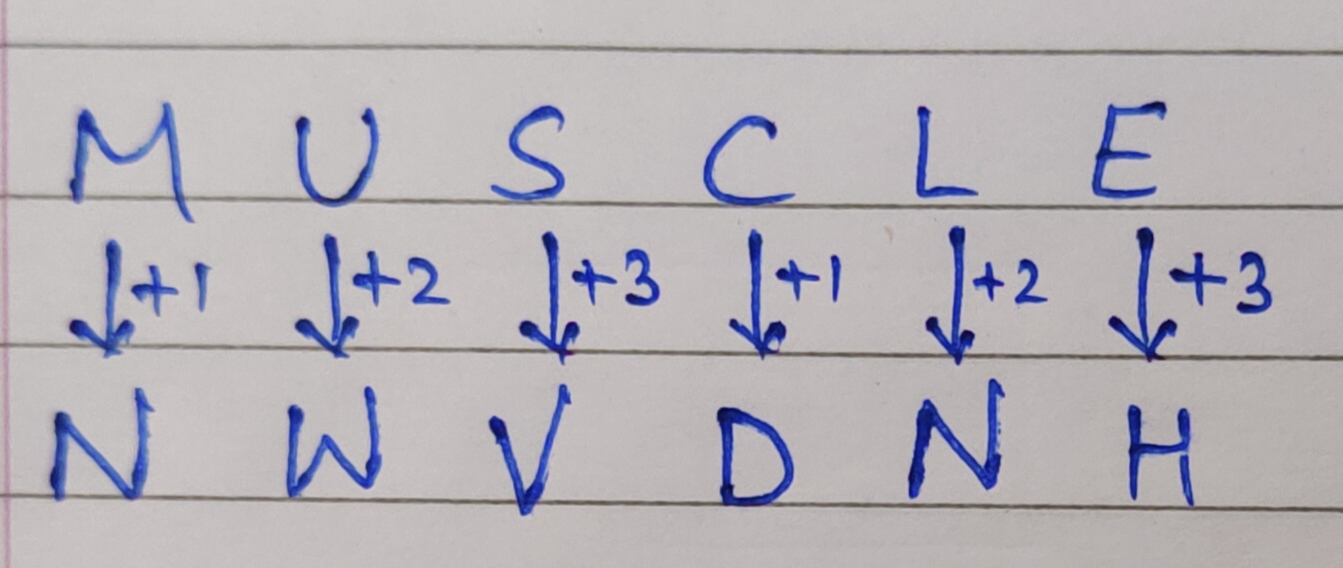 M U S C L E
↓+1 ↓+2 ↓+3 ↓+1 ↓+2 ↓+3
N W V D N H